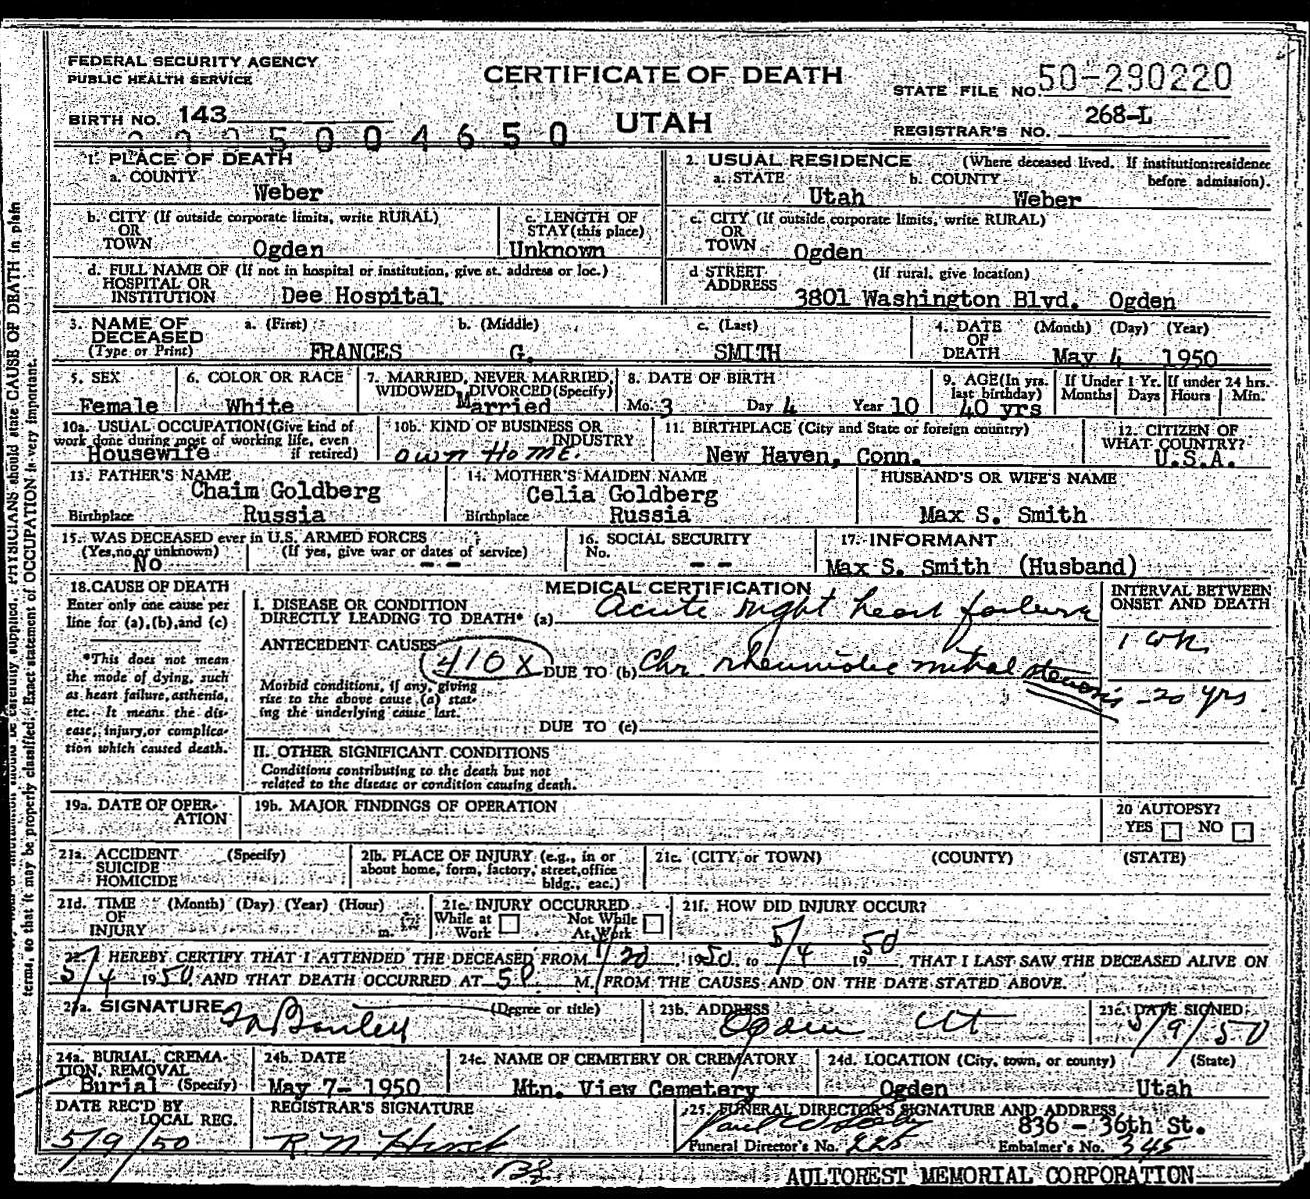 FEDERAL SECURITY AGENCY
PUBLIC HEALTH SERVICE
CERTIFICATE OF DEATH
UTAH
STATE FILE NO. 50-290220
BIRTH NO. 143
REGISTRAR'S NO. 268-L
5 0 0 4 6 5 0
1. PLACE OF DEATH
a. COUNTY
Weber
2. USUAL RESIDENCE (Where deceased lived. If institution:residence before admission).
a. STATE Utah b. COUNTY Weber
b. CITY (If outside corporate limits, write RURAL)
OR
TOWN Ogden
c. LENGTH OF STAY (this place)
Unknown
c. CITY (If outside corporate limits, write RURAL)
OR
TOWN Ogden
d. FULL NAME OF (If not in hospital or institution, give st. address or loc.)
HOSPITAL OR
INSTITUTION Dee Hospital
d STREET ADDRESS (If rural, give location)
3801 Washington Blvd. Ogden
3. NAME OF DECEASED
(Type or Print)
a. (First) b. (Middle) c. (Last)
FRANCES G. SMITH
4. DATE OF DEATH (Month) (Day) (Year)
May 4 1950
5. SEX
Female
6. COLOR OR RACE
White
7. MARRIED, NEVER MARRIED, WIDOWED, DIVORCED (Specify)
Married
8. DATE OF BIRTH
Mo. 3 Day 4 Year 10
9. AGE (In yrs. last birthday)
40 yrs
If Under 1 Yr. Months Days
If under 24 hrs. Hours Min.
10a. USUAL OCCUPATION (Give kind of work done during most of working life, even if retired)
Housewife
10b. KIND OF BUSINESS OR INDUSTRY
own HOME.
11. BIRTHPLACE (City and State or foreign country)
New Haven, Conn.
12. CITIZEN OF WHAT COUNTRY?
U.S.A.
13. FATHER'S NAME
Chaim Goldberg
Birthplace Russia
14. MOTHER'S MAIDEN NAME
Celia Goldberg
Birthplace Russia
HUSBAND'S OR WIFE'S NAME
Max S. Smith
15. WAS DECEASED ever in U.S. ARMED FORCES
(Yes, no or unknown) (If yes, give war or dates of service)
No --
16. SOCIAL SECURITY
No. --
17. INFORMANT
Max S. Smith (Husband)
18. CAUSE OF DEATH
Enter only one cause per line for (a), (b), and (c)
*This does not mean the mode of dying, such as heart failure, asthenia, etc. It means the disease, injury, or complication which caused death.
MEDICAL CERTIFICATION
I. DISEASE OR CONDITION DIRECTLY LEADING TO DEATH* (a) Acute right heart failure
INTERVAL BETWEEN ONSET AND DEATH
1 wk
ANTECEDENT CAUSES
410X
DUE TO (b) Chr rheumatic mitral stenosis - 20 yrs.
Morbid conditions, if any, giving rise to the above cause (a) stating the underlying cause last.
DUE TO (c)
II. OTHER SIGNIFICANT CONDITIONS
Conditions contributing to the death but not related to the disease or condition causing death.
19a. DATE OF OPERATION
19b. MAJOR FINDINGS OF OPERATION
20 AUTOPSY?
YES NO
21a. ACCIDENT (Specify)
SUICIDE
HOMICIDE
21b. PLACE OF INJURY (e.g., in or about home, form, factory, street, office bldg., eac.)
21c. (CITY or TOWN) (COUNTY) (STATE)
21d. TIME OF INJURY (Month) (Day) (Year) (Hour) m.
21e. INJURY OCCURRED
While at Work Not While At Work
21f. HOW DID INJURY OCCUR?
22. I HEREBY CERTIFY THAT I ATTENDED THE DECEASED FROM 1/20 1950, to 5/4 1950, THAT I LAST SAW THE DECEASED ALIVE ON
5/4 1950, AND THAT DEATH OCCURRED AT 5P M., FROM THE CAUSES AND ON THE DATE STATED ABOVE.
23a. SIGNATURE (Degree or title)
23b. ADDRESS
Ogden Ut
23c. DATE SIGNED
5/9/50
24a. BURIAL, CREMATION, REMOVAL (Specify)
Burial
24b. DATE
May 7- 1950
24c. NAME OF CEMETERY OR CREMATORY
Mtn. View Cemetery
24d. LOCATION (City, town, or county) (State)
Ogden Utah
DATE REC'D BY LOCAL REG.
5/9/50
REGISTRAR'S SIGNATURE
25. FUNERAL DIRECTOR'S SIGNATURE AND ADDRESS
836 - 36th St.
Funeral Director's No. 225 Embalmer's No. 345
AULTOREST MEMORIAL CORPORATION
PHYSICIANS should state CAUSE OF DEATH in plain
terms, so that it may be properly classified. Exact statement of OCCUPATION is very important.